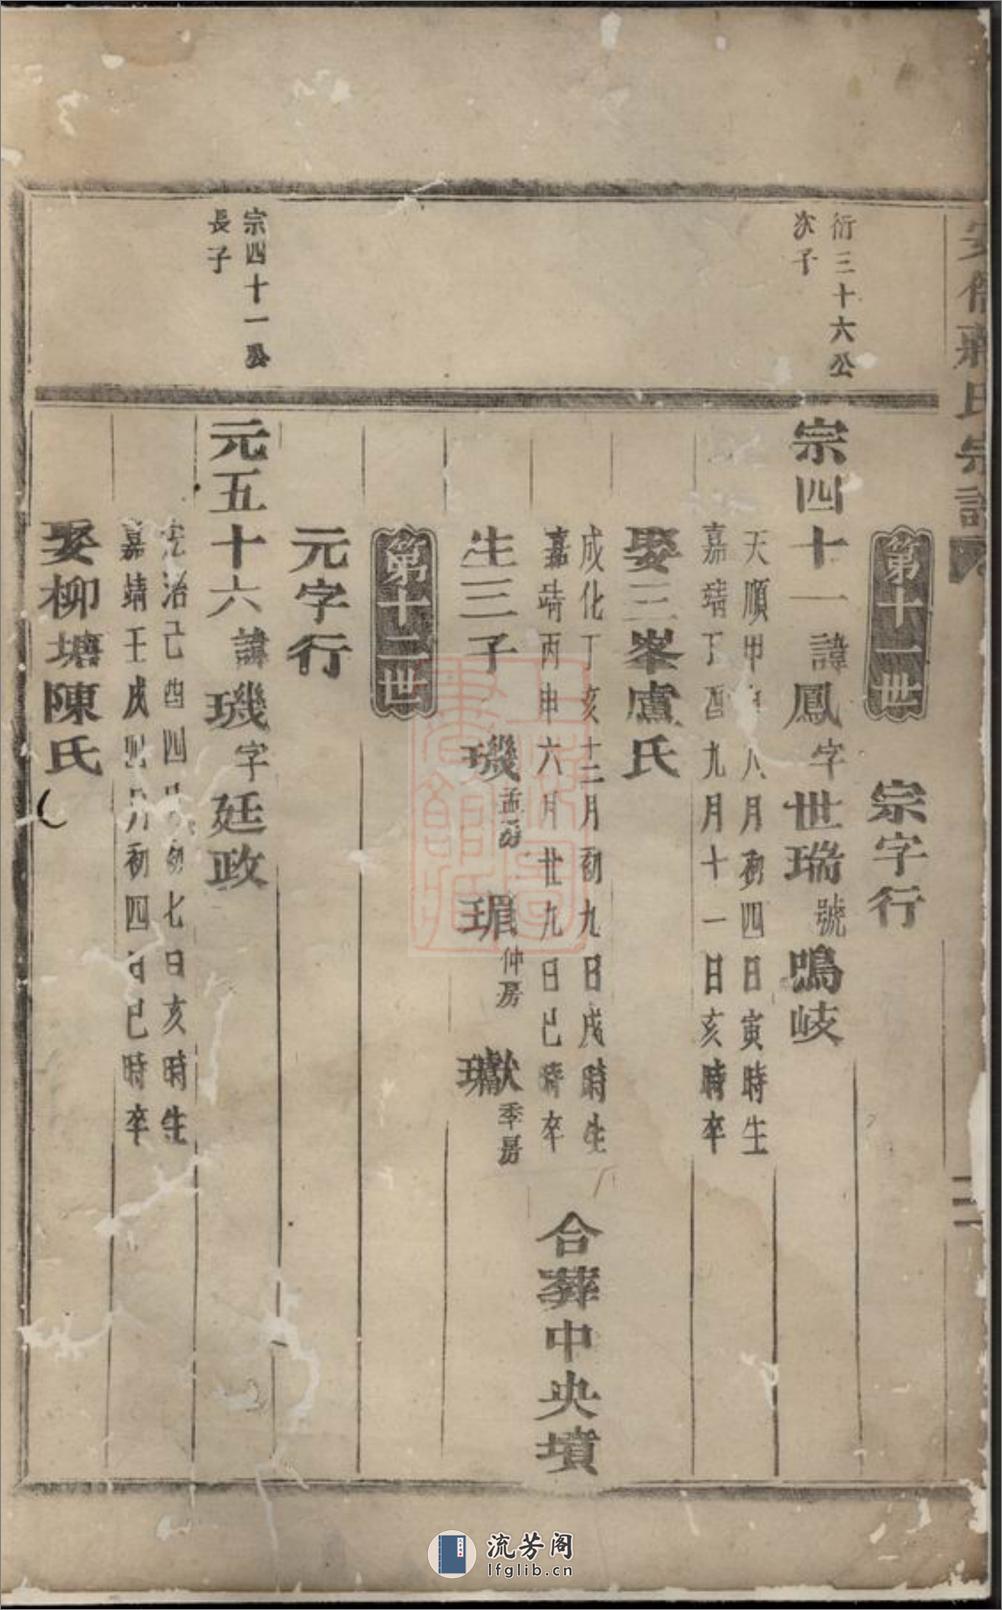 氏宗譜
第十一世
宗字行
衍三十六公
次子
宗四十一諱鳳字世瑞號鳴岐
天順甲八月初四日寅時生
嘉靖丁酉九月十一日亥時卒
娶三峯盧氏
成化丁亥十二月初九日戌時生
嘉靖丙申六月廿九日巳時卒
合葬中央墳
生三子 璣孟房 瑻仲房 瓛季房
第十二世
元字行
宗四十一公
長子
元五十六諱璣字廷政
弘治己酉四月初七日亥時生
嘉靖壬戌四月初四日巳時卒
娶柳塘陳氏
流芳阁
lfglib.cn